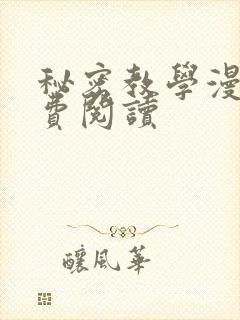 秘密教學漫
費閱讀
釀風華